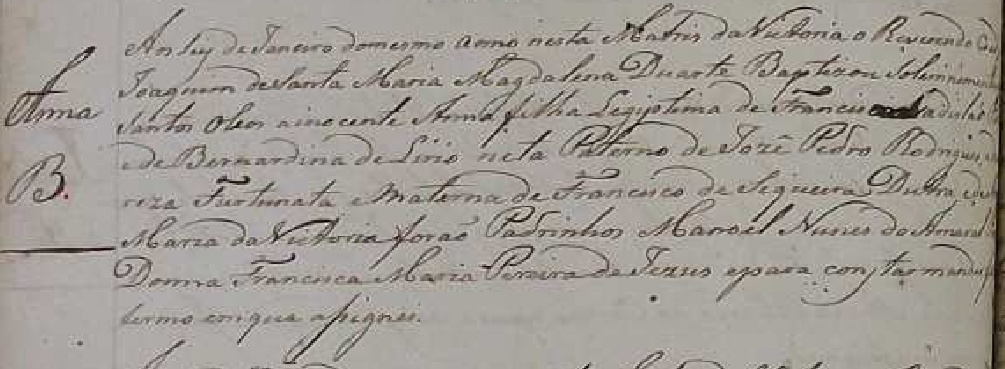 Anna
B.
de Janeiro do mesmo anno nesta Matris da Victoria o Reverendo
Joaquim de Santa Maria Magdalena Duarte Baptizou Solemnem
Santos Oleos a inocente Anna filha Legiptima de Francisco
e de Bernardina de Lirio neta Paterna de Jozê Pedro Rodrigues
roza Furtunata e Materna de Francisco de Siqueira Dutra e de
Maria da Victoria forão Padrinhos Manoel Nunes do Amaral
Donna Francisca Maria Pereira de Jezus e para constar mandei
termo em que asignei.